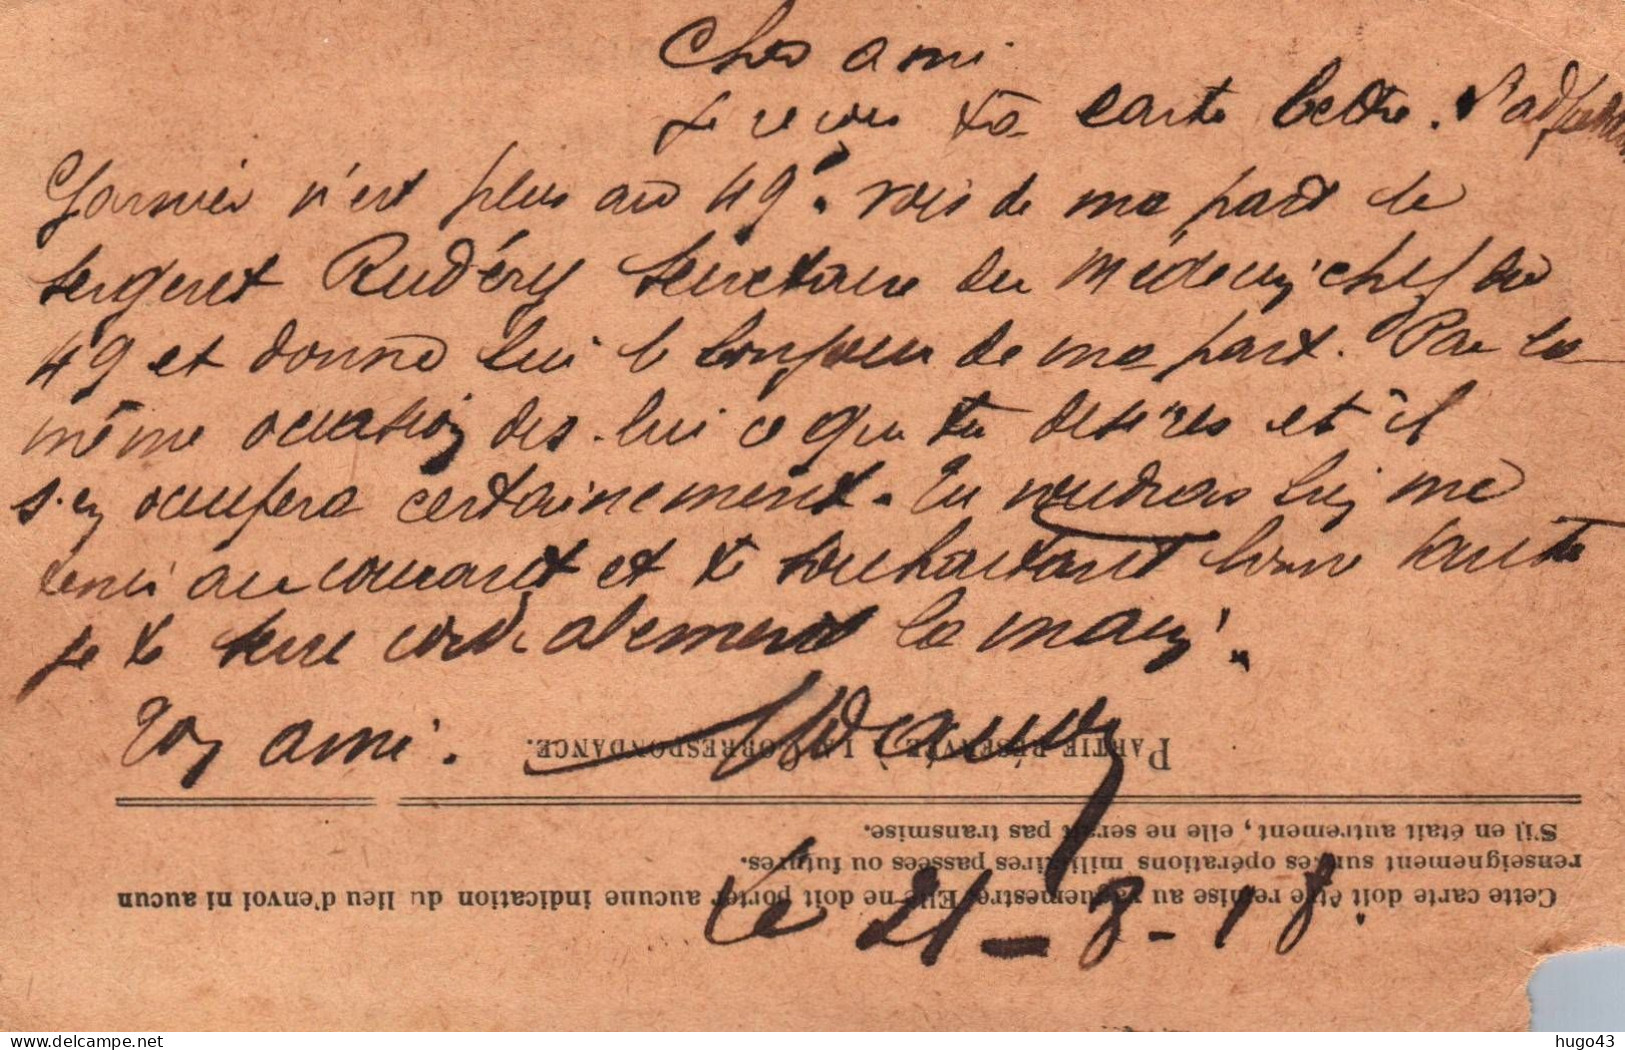 Cher ami
Je recois ta carte lettre. l'adjudant
Garnier n'est plus au 49e. vois de ma part le
sergent Rudéry secretaire du Médecin chef du
49 et donne lui le bonjour de ma part. Par la
même occasion dis-lui ce que tu desires et il
s'en occupera certainement. Tu voudras bien me
tenir au courant et te souhaitant bonne santé
je te serre cordialement la main.
Ton ami.
PARTIE RÉSERVÉE À LA CORRESPONDANCE.
S'il en était autrement, elle ne serait pas transmise.
renseignement sur les opérations militaires passées ou futures.
Cette carte doit être remise au vaguemestre. Elle ne doit porter aucune indication du lieu d'envoi ni aucun
Le 21-8-18.
delcampe.net
hugo43